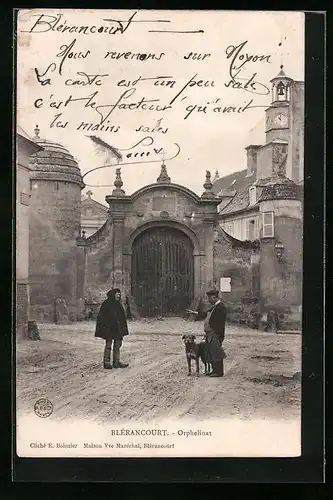 Blérancourt
Nous revenons sur Noyon
La carte est un peu sale
c'est le facteur qu'avait
les mains sales
Louis
BLÉRANCOURT. - Orphelinat
Cliché E. Boinnier Maison Vve Maréchal, Blérancourt